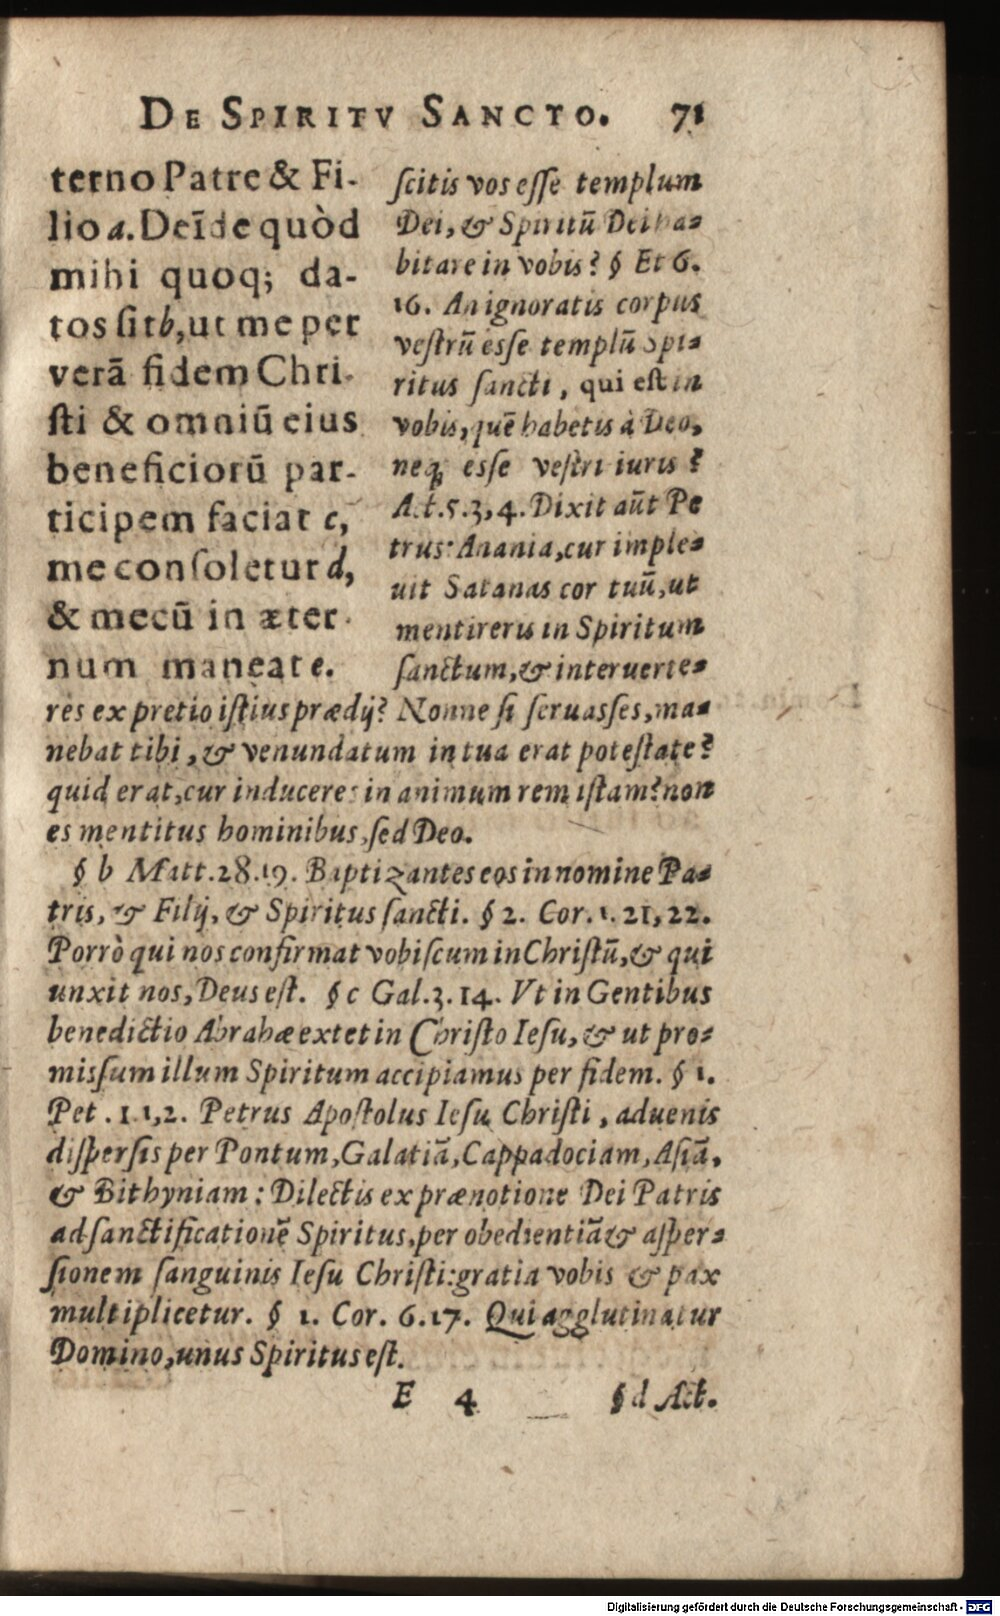 DE SPIRITV SANCTO. 71
terno Patre & Fi-
lio a. Deīde quòd
mihi quoq; da-
tos sit b, ut me per
verā fidem Chri-
sti & omniū eius
beneficiorū par-
ticipem faciat c,
me consoletur d,
& mecū in æter-
num maneat e.
scitis vos esse templum
Dei, & Spiritū Dei ha-
bitare in vobis? § Et 6.
16. An ignoratis corpus
vestrū esse templū Spi-
ritus sancti, qui est in
vobis, quē habetis à Deo,
neq; esse vestri iuris?
Act. 5. 3, 4. Dixit aūt Pe
trus: Anania, cur imple-
uit Satanas cor tuū, ut
mentireris in Spiritum
sanctum, & interuerte-
res ex pretio istius prædij? Nonne si seruasses, ma-
nebat tibi, & venundatum in tua erat potestate?
quid erat, cur induceres in animum rem istam? non
es mentitus hominibus, sed Deo.
§ b Matt. 28. 19. Baptizantes eos in nomine Pa-
tris, & Filij, & Spiritus sancti. § 2. Cor. 1. 21, 22.
Porrò qui nos confirmat vobiscum in Christū, & qui
unxit nos, Deus est. § c Gal. 3. 14. Vt in Gentibus
benedictio Abrahæ extet in Christo Iesu, & ut pro-
missum illum Spiritum accipiamus per fidem. § 1.
Pet. 1. 1, 2. Petrus Apostolus Iesu Christi, aduenis
dispersis per Pontum, Galatiā, Cappadociam, Asiā,
& Bithyniam: Dilectis ex prænotione Dei Patris
ad sanctificationē Spiritus, per obedientiā & asper-
sionem sanguinis Iesu Christi: gratia vobis & pax
multiplicetur. § 1. Cor. 6. 17. Qui agglutinatur
Domino, unus Spiritus est.
E 4 § d Act.
Digitalisierung gefördert durch die Deutsche Forschungsgemeinschaft - DFG